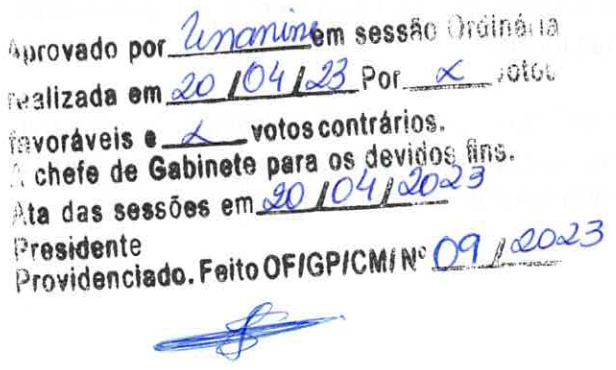 Aprovado por Unanime em sessão Ordinária
realizada em 20/04/23 Por x votos
favoráveis e x votos contrários.
À chefe de Gabinete para os devidos fins.
Ata das sessões em 20/04/2023
Presidente
Providenciado. Feito OF/GP/CM/ Nº 09/2023